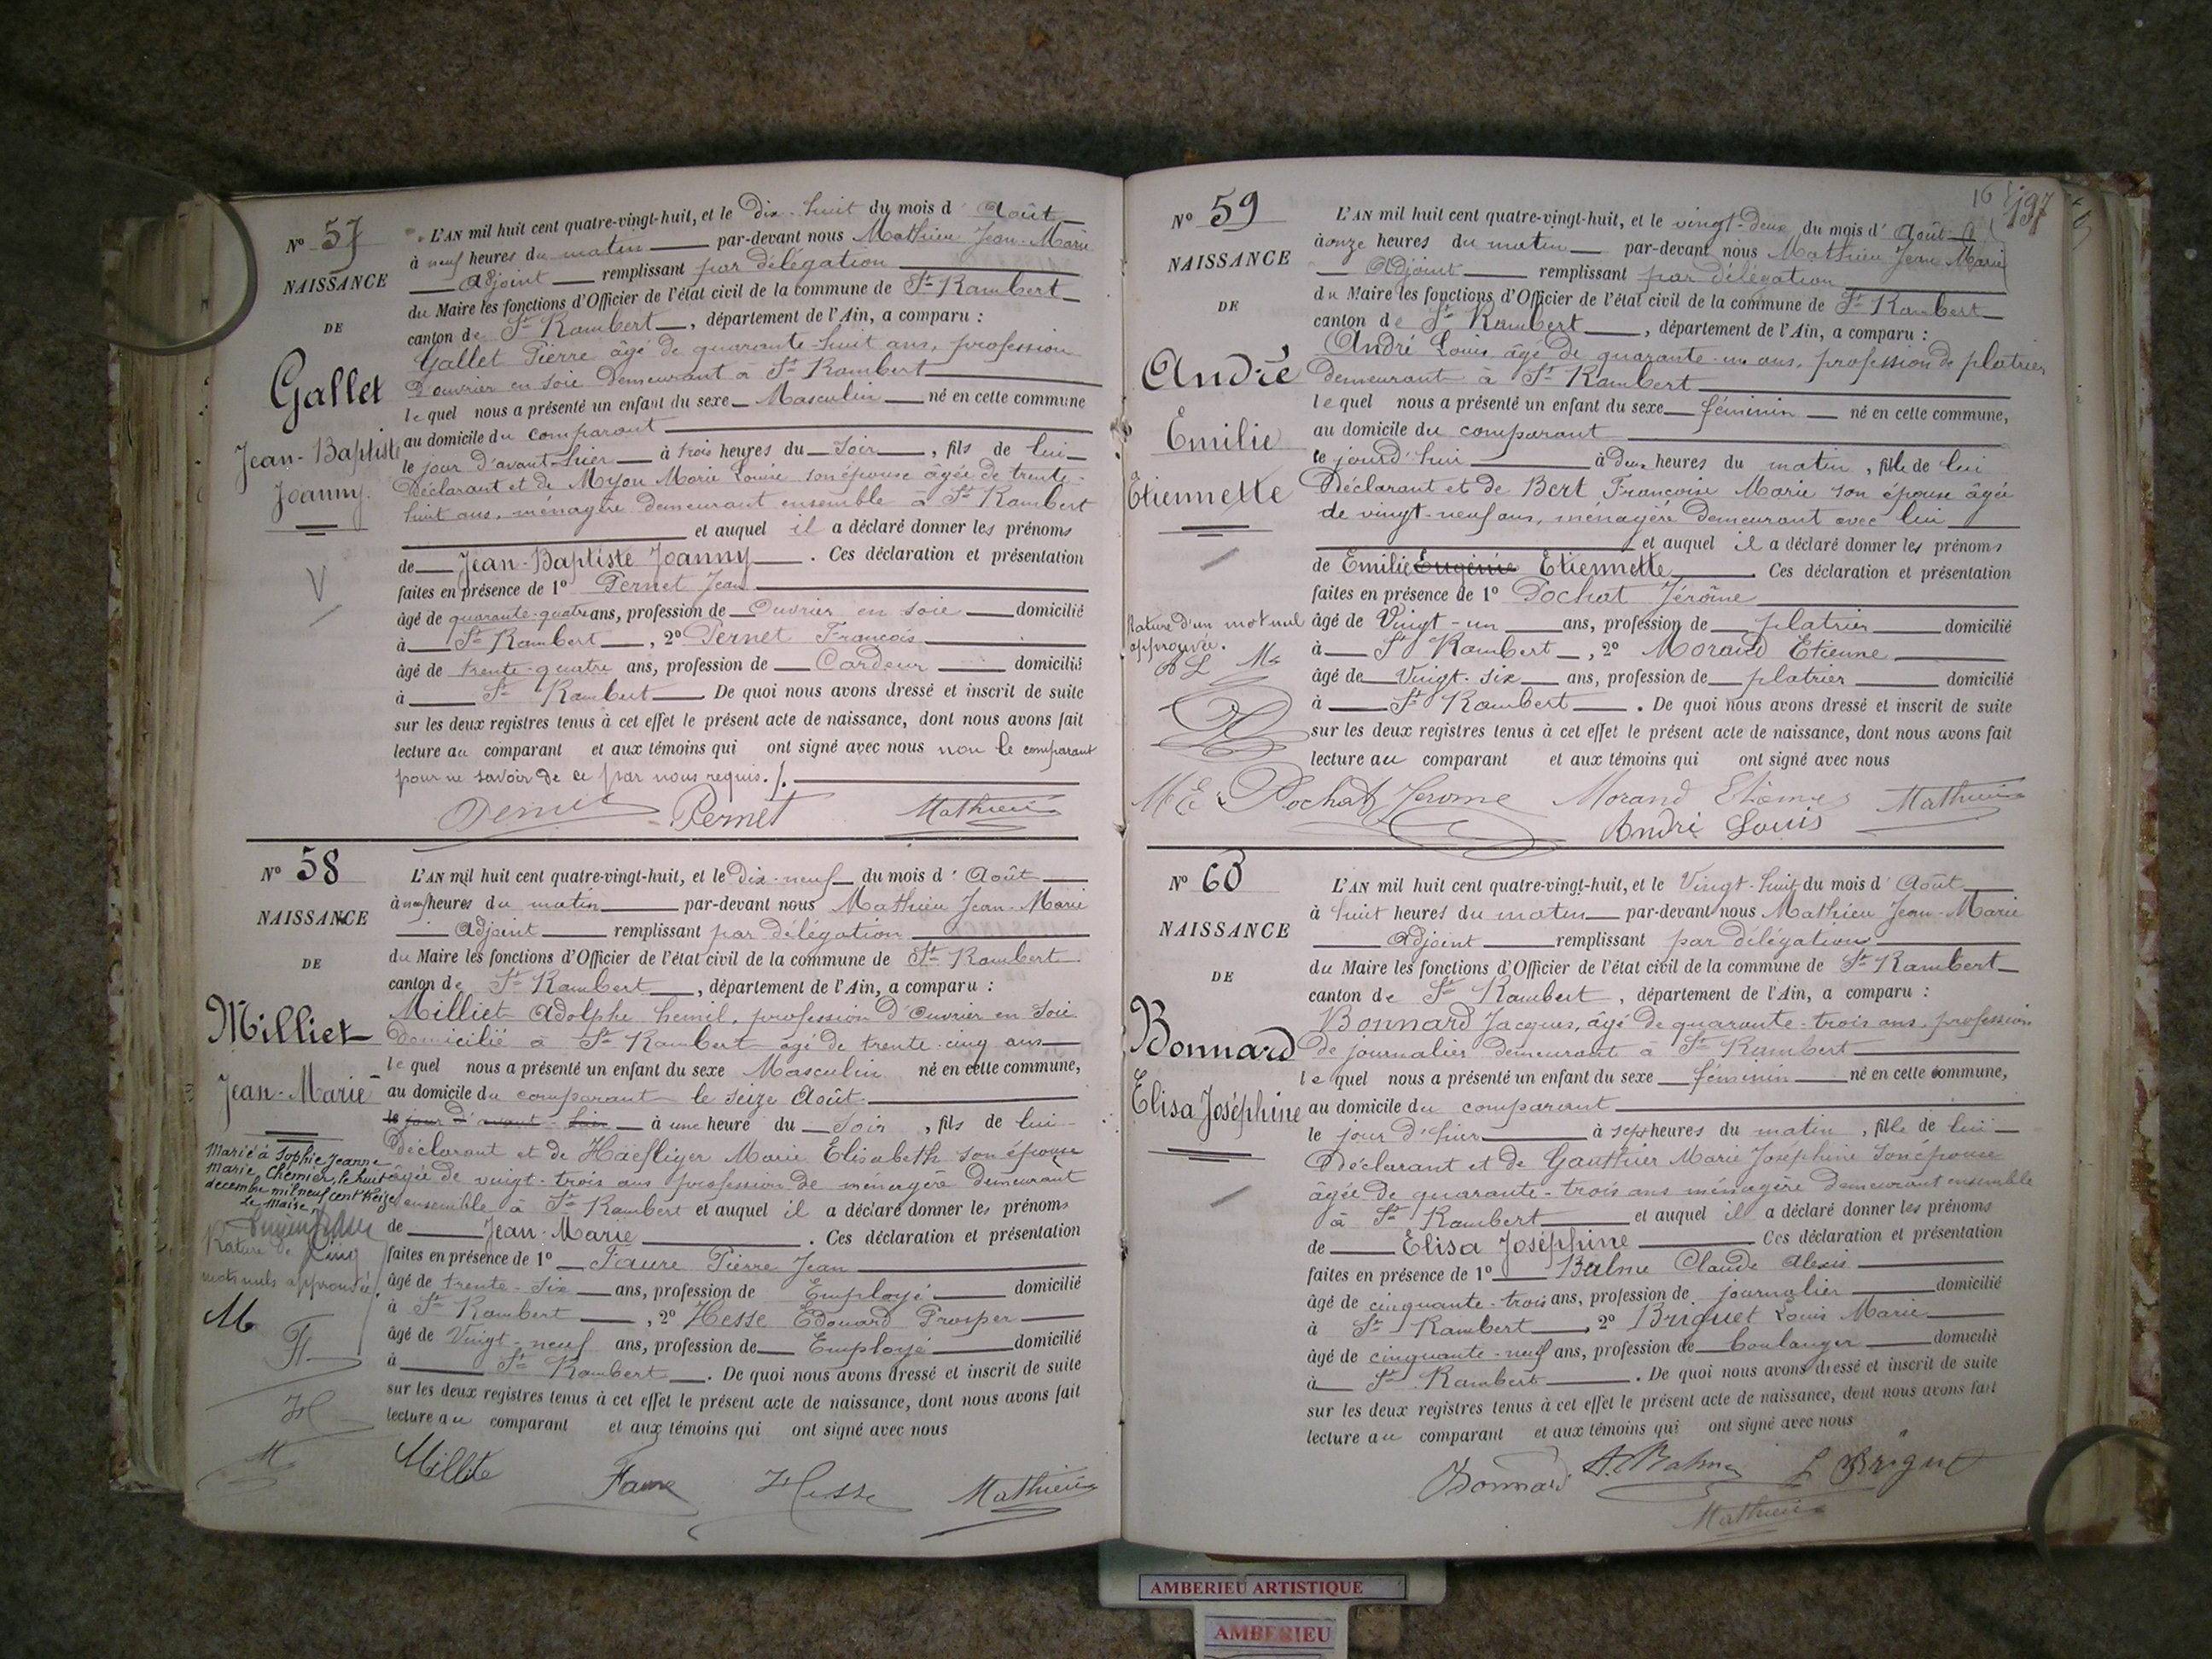 Nº 57
NAISSANCE
DE
Gallet
Jean-Baptiste
Joanny.
L'AN mil huit cent quatre-vingt-huit, et le Dix-huit du mois d' Août
à neuf heures du matin par-devant nous Mathieu Jean-Marie
Adjoint remplissant par délégation
du Maire les fonctions d'Officier de l'état civil de la commune de St Rambert
canton de St Rambert, département de l'Ain, a comparu :
Gallet Pierre âgé de quarante-huit ans, profession
d'ouvrier en soie demeurant à St Rambert
lequel nous a présenté un enfant du sexe Masculin né en cette commune
au domicile du comparant
le jour d'avant-hier à trois heures du soir, fils de lui
Déclarant et de Myon Marie Louise son épouse âgée de trente-
huit ans, ménagère demeurant ensemble à St Rambert
et auquel il a déclaré donner les prénoms
de Jean-Baptiste Joanny. Ces déclaration et présentation
faites en présence de 1º Pernet Jean
âgé de quarante-quatre ans, profession de Ouvrier en soie domicilié
à St Rambert, 2º Pernet François
âgé de trente-quatre ans, profession de Cardeur domicilié
à St Rambert De quoi nous avons dressé et inscrit de suite
sur les deux registres tenus à cet effet le présent acte de naissance, dont nous avons fait
lecture au comparant et aux témoins qui ont signé avec nous non le comparant
pour ne savoir de ce par nous requis./.
Pernet Mathieu
Nº 58
NAISSANCE
DE
Milliet
Jean-Marie
Marié à Sophie Jeanne
Marie Chemier, le huit
décembre mil neuf cent treize
Le Maire
Rature de cinq
mots nuls approuvée
M
F
H
M
L'AN mil huit cent quatre-vingt-huit, et le Dix-neuf du mois d' Août
à neuf heures du matin par-devant nous Mathieu Jean-Marie
Adjoint remplissant par délégation
du Maire les fonctions d'Officier de l'état civil de la commune de St Rambert
canton de St Rambert, département de l'Ain, a comparu :
Milliet Adolphe hemil, profession d'Ouvrier en Soie
Domicilié à St Rambert âgé de trente-cinq ans
lequel nous a présenté un enfant du sexe Masculin né en cette commune,
au domicile du comparant le seize Août
le jour d'avant-hier à une heure du soir, fils de lui
Déclarant et de Haefliger Marie Elisabeth son épouse
âgée de vingt-trois ans profession de menergère demeurant
ensemble à St Rambert et auquel il a déclaré donner les prénoms
de Jean-Marie. Ces déclaration et présentation
faites en présence de 1º Faure Pierre Jean
âgé de trente-six ans, profession de Employé domicilié
à St Rambert, 2º Hesse Edouard Prosper
âgé de Vingt-neuf ans, profession de Employé domicilié
à St Rambert. De quoi nous avons dressé et inscrit de suite
sur les deux registres tenus à cet effet le présent acte de naissance, dont nous avons fait
lecture au comparant et aux témoins qui ont signé avec nous
Faure Hesse Mathieu
16
197
Nº 59
NAISSANCE
DE
André
Emilie
Etiennette
Rature d'un mot nul
approuvée.
L'AN mil huit cent quatre-vingt-huit, et le vingt-deux du mois d' Août
à onze heures du matin par-devant nous Mathieu Jean Marie
Adjoint remplissant par délégation
du Maire les fonctions d'Officier de l'état civil de la commune de St Rambert
canton de St Rambert, département de l'Ain, a comparu :
André Louis, âgé de quarante-un ans, profession de platrier
demeurant à St Rambert
lequel nous a présenté un enfant du sexe féminin né en cette commune,
au domicile du comparant
ce jourd'hui à deux heures du matin, fille de lui
Déclarant et de Bert Françoise Marie son épouse âgée
de vingt-neuf ans, ménagère demeurant avec lui
et auquel il a déclaré donner les prénoms
de Emilie Eugénie Etiennette Ces déclaration et présentation
faites en présence de 1º Pochat Jérôme
âgé de Vingt-un ans, profession de platrier domicilié
à St Rambert, 2º Morand Etienne
âgé de Vingt-six ans, profession de platrier domicilié
à St Rambert. De quoi nous avons dressé et inscrit de suite
sur les deux registres tenus à cet effet le présent acte de naissance, dont nous avons fait
lecture au comparant et aux témoins qui ont signé avec nous
M E Pochat Jerome Morand Etienne Mathieu
André Louis
Nº 60
NAISSANCE
DE
Bonnard
Elisa Joséphine
L'AN mil huit cent quatre-vingt-huit, et le Vingt-huit du mois d' Août
à huit heures du matin par-devant nous Mathieu Jean-Marie
Adjoint remplissant par délégation
du Maire les fonctions d'Officier de l'état civil de la commune de St Rambert
canton de St Rambert, département de l'Ain, a comparu :
Bonnard Jacques, âgé de quarante-trois ans, profession
de journalier demeurant à St Rambert
lequel nous a présenté un enfant du sexe féminin né en cette commune,
au domicile du comparant
le jour d'hier à sept heures du matin, fille de lui
Déclarant et de Gauthier Marie Joséphine son épouse
âgée de quarante-trois ans ménagère demeurant ensemble
à St Rambert et auquel il a déclaré donner les prénoms
de Elisa Joséphine Ces déclaration et présentation
faites en présence de 1º Balme Claude Alexis
âgé de cinquante-trois ans, profession de journalier domicilié
à St Rambert, 2º Briguet Louis Marie
âgé de cinquante-neuf ans, profession de boulanger domicilié
à St Rambert. De quoi nous avons dressé et inscrit de suite
sur les deux registres tenus à cet effet le présent acte de naissance, dont nous avons fait
lecture au comparant et aux témoins qui ont signé avec nous
Bonnard A. Balme L Briguet
Mathieu
AMBERIEU ARTISTIQUE
AMBERIEU